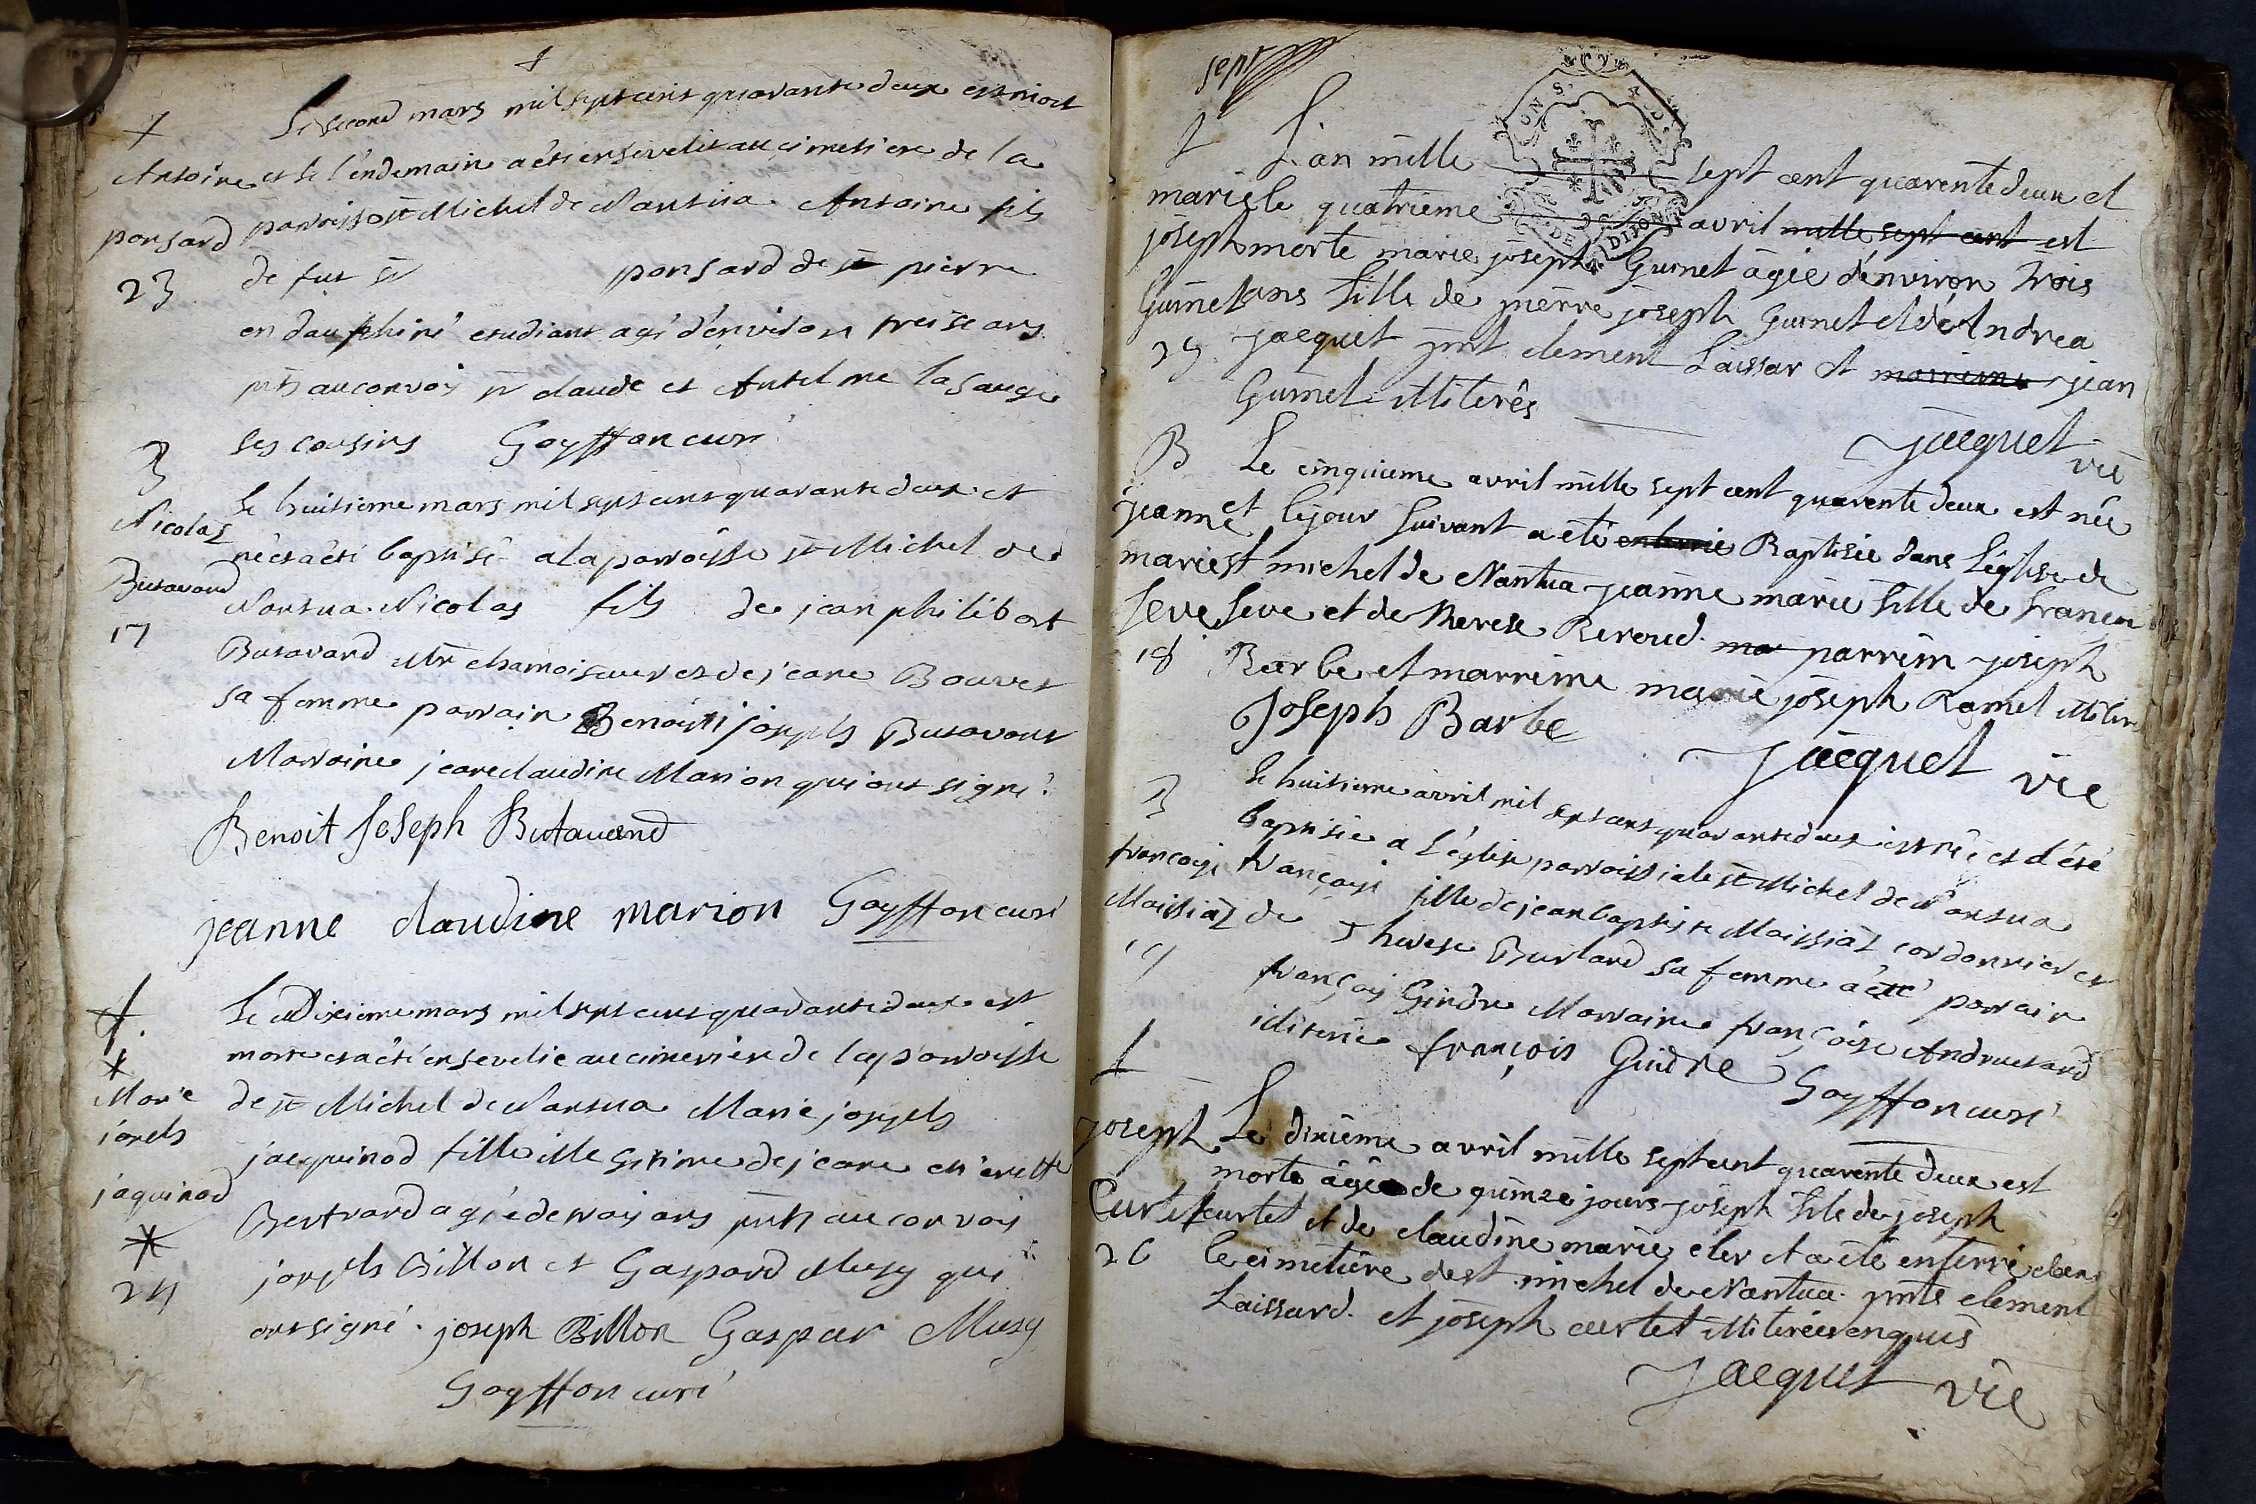 Le second mars mil sept cent quarante deux est mort
Antoine et le l'endemain a été enseveli au cimetiere de la
ponsard parroisse st Michel de Nantua Antoine fils
de fut sr ponsard de st pierre
23
en dauphiné etudiant agé d'environ treise ans
pnts au convoy sr claude et Antelme la sauge
ses cousins Goyffon curé
B le huitieme mars mil sept cens quarante deux est
Nicolas né et a été baptisé a la parroisse st Michel de
Butavand Nantua Nicolas fils de jean philibert
17 Butavand Mtre chamoiseur et de jeane Bouvet
sa femme parrain Benoit joseph Butavant
Marraine jeane claudine Marion qui ont signé
Benoit Joseph Butavand
jeanne claudine marion Goyffon curé
Le Dixieme mars mil sept cens quarante deux est
morte et a été ensevelie au cimetiere de la parroisse
Marie de st Michel de Nantua Marie joseph
joseph
jaquinod jacquinod fille illegitime de jeane
Bertrand agée de trois ans pnts au convoy
24 joseph Billon et Gaspard Musy qui
ont signé. joseph Billon Gaspar Musy
Goyffon curé
sept
L'an mille sept cent quarente deux et
marie le quatrieme avril mille sept cent est
joseph morte marie joseph Gurnet âgée d'environ trois
Gurnet ans fille de pierre joseph Gurnet et de Andrea
25 jacquet pnt clement Laissar et marriene jean
Gurnet illiterés
jacquet vic
B Le cinquieme avril mille sept cent quarente deux est née
jeanne et le jour suivant a eté enterrée Baptisée dans l'église de
marie st michel de Nantua jeanne marie fille de francois
seve seve et de therese Reroud. ma parrein joseph
18 Barbe et marreine marie joseph Ramel
Joseph Barbe
jacquet vic
B le huitieme avril mil sept cens quarante deux est née et a été
baptisée a l'église parroissiale st Michel de Nantua
françoise françoise fille de jean baptiste Maissiat cordonnier et
Maissiat de Therese Burlard sa femme a été parrain
19 françois Gindre Marraine françoise Andruetand
ilitérée françois Gindre
Goyffon curé
joseph Le dixiéme avril mille sept cent quarente deux est
morte âgée de quinze jours joseph fils de joseph
Curtet curtet et de claudine marie cler et a eté enterré dans
26 le cimetiére de st. michel de Nantua. pnts clement
Laissard. et joseph curtet illiterés enquis
Jacquet vic